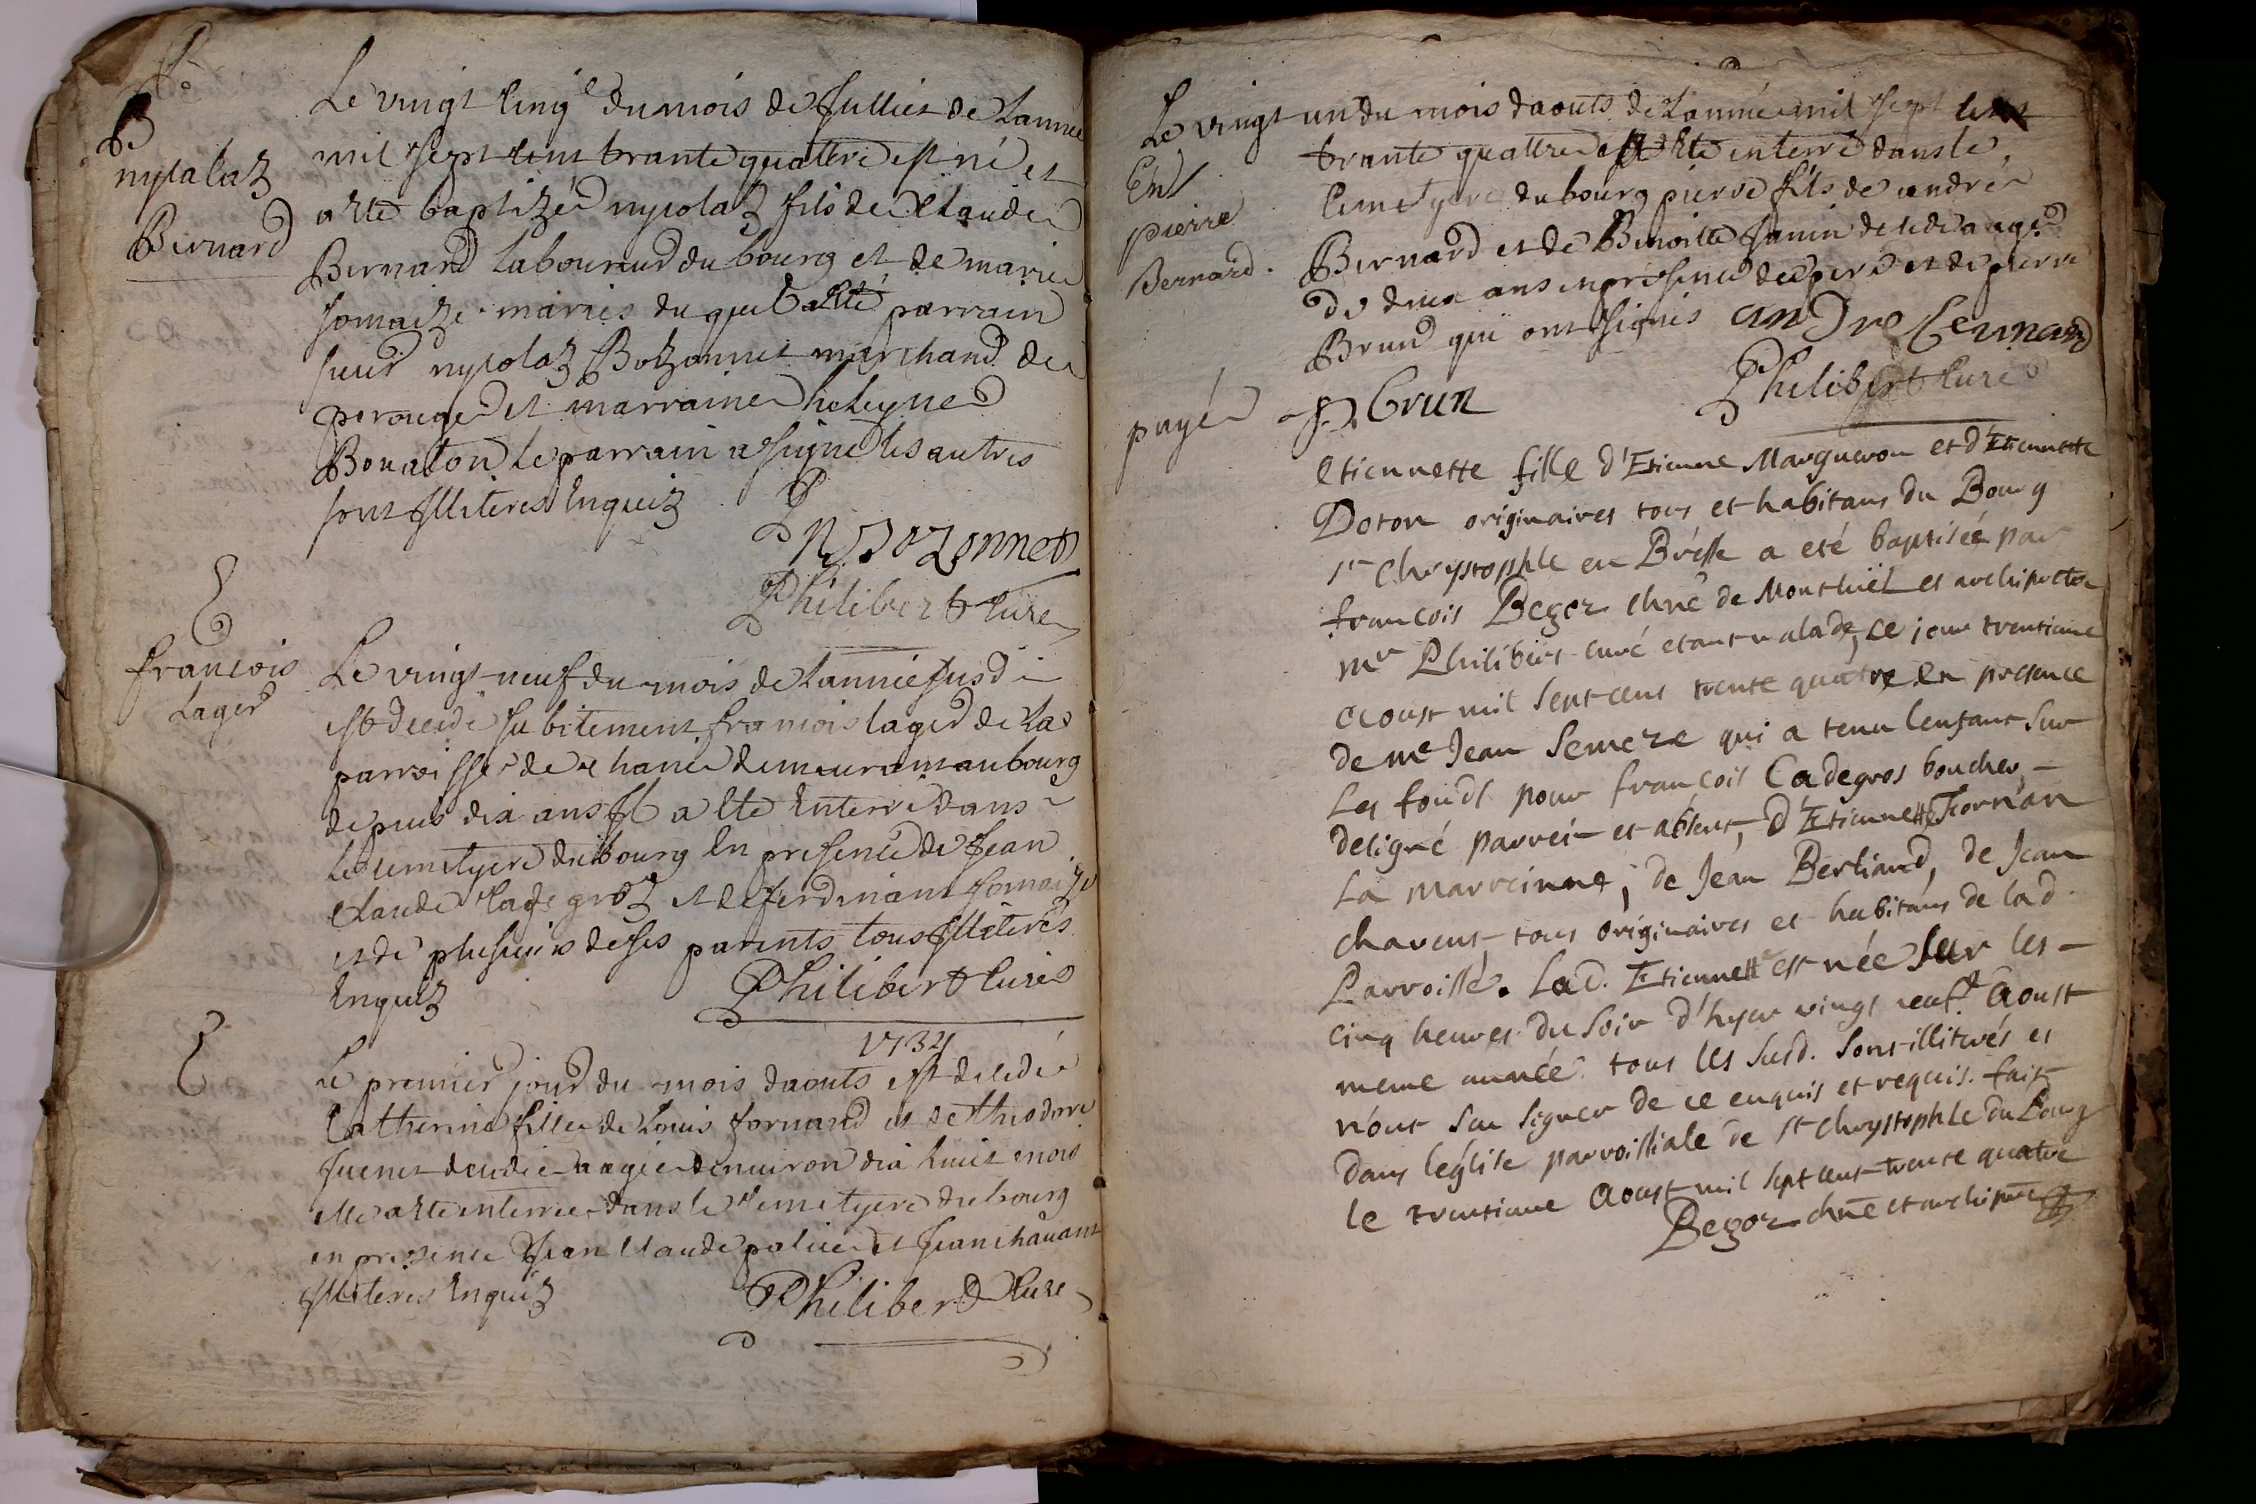 B
nycolaz
Bernard
Le vingt cinq.e du mois de Jullies de Lannee
mil sept cent trante quattre est né et
a ete baptizée nycolaz fils de Claude
Bernard laboureur du bourg et de marie
Jomaize mariés du quel a eté parrain
sieur nycolaz Bozonnet marchand de
perouge et marraine heleyne
Bonaton le parrain a signé les autres
sont Illiteres Enquiz
N Bozonnet
Philibert Curé
E
francois
Lager
Le vingt neuf du mois de Lannee susd
est decede subitement francois lager de la
parroisse de chane demeurant au bourg
depuis dix ans Il a ete Enterré dans
le cemetyere du bourg En presence de Jean
Claude Cadegroz et de ferdinant Jomaize
et de plusieurs de ses parents tous Illiteres
Enquiz
Philibert Curé
1734
E
Le premier jour du mois daouts est decedé
Catherine fillie de Louis fornand et de theodore
Juenet decedie aagée denuiron dix huict mois
elle a ete enterrée dans le cemetyere du bourg
en presence Jean Claude policet et Jean chauant
Illiteres Enquiz
Philibert Curé
Le vingt un du mois daouts de Lannée mil sept cent
trante quattre est ete enterré dans le
Ent
pierre
Bernard
cemetyere du bourg pierre fils de andre
Bernard et de Benoitte Janin decede aagé
de deux ans en presence de pere et de pierre
Brun qui ont signés andre bernard
payé
p. brun
Philibert Curé
Etiennette fille d'Etienne Margueron et d'Etiennette
Doton originaires tous et habitans du Bourg
st Chrystophle en Brésse a eté baptisée par
francois Begoz chne de Montluël et archiprêtre
mr Philibert curé etant malade, ce jour trentieme
aoust mil sept cent trente quatre en presence
de me Jean Semeze qui a tenu l'enfant sur
Les fonds pour francois Cadegros boucher,
deligné parrein et absent, d'Etiennette Fornan
La marreinne, de Jean Bertiand, de Jean
chavent tous originaires et habitans de lad.
Parroisse. Lad. Etiennette est née sur les
cinq heures du soir d'hyer vingt neuf.e Aoust
meme année. tous les susd. sont illiterés et
n'ont su signer de ce enquis et requis. fait
dans leglise parroissiale de st Chrystophle du Bourg
le trentieme Aoust mil sept cent trente quatre
Begoz chne et archiprêtre